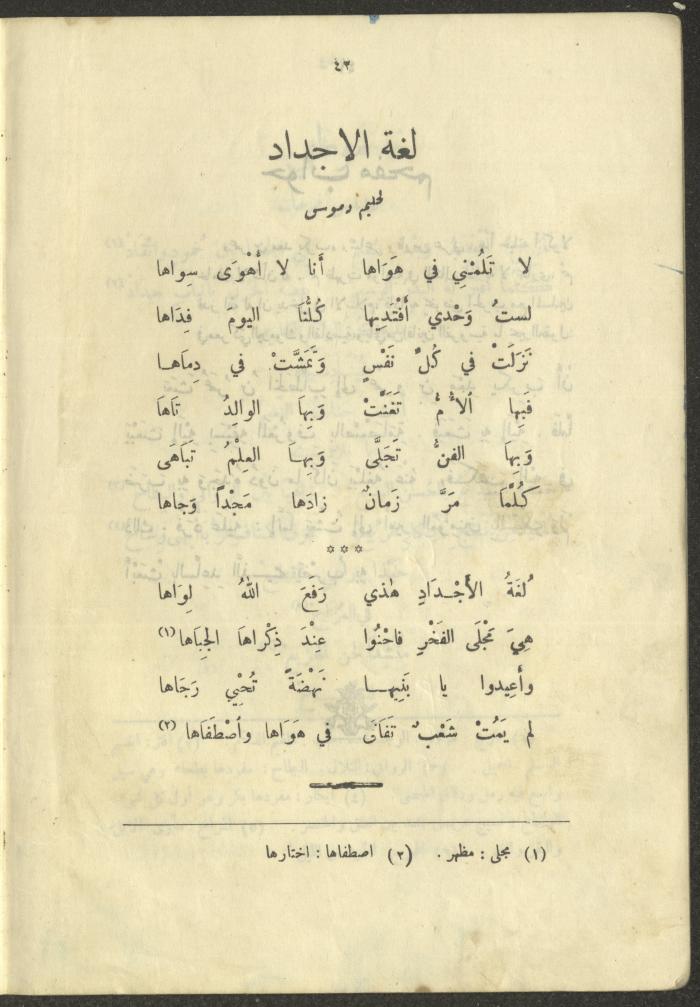 ٤٣
لغة الاجداد
لحليم دموس
لا تَلُمْنِي في هَوَاها أَنا لا أَهْوَى سِواها
لستُ وَحْدي أَفْتَديها كُلُّنا اليومَ فِدَاها
نَزَلَتْ في كُلِّ نَفْسٍ وَتَمَشَّتْ في دِمَاها
فَبِها الأُمُّ تَغَنَّتْ وَبِها الوالِدُ تَاها
وَبِها الفنُّ تَجَلَّى وَبِها العِلْمُ تَبَاهَى
كُلَّمَا مَرَّ زَمَانٌ زادَها مَجْداً وَجاها
***
لُغَةُ الأَجْدادِ هٰذي رَفَعَ اللهُ لِوَاها
هِيَ مَجْلَى الفَخْرِ فاحْنُوا عِنْدَ ذِكْراها الجِبَاها (١)
وأَعِيدوا يا بَنِيها نَهْضَةً تُحْيِي رَجَاها
لم يَمُتْ شَعْبٌ تَفَانَى في هَوَاها وأصْطَفَاها (٢)
(١) مجلى : مظهر . (٢) اصطفاها : اختارها